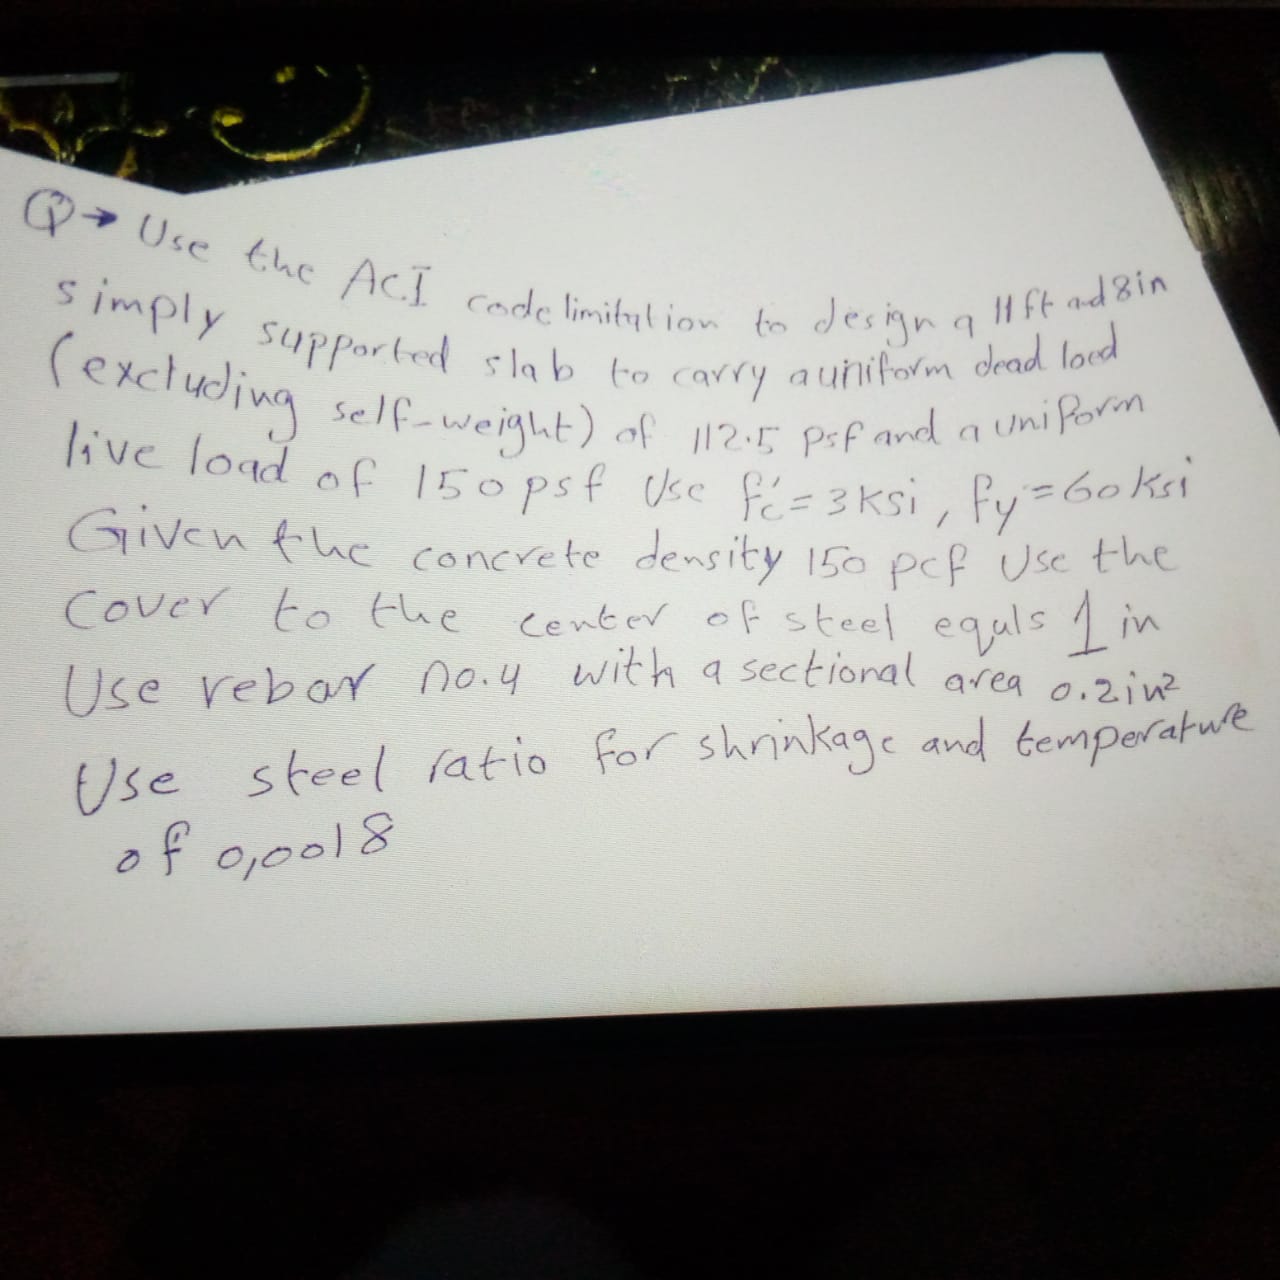 Q → Use the ACI code limitation to design a 11 ft ad 8 in
simply supported slab to carry a uniform dead load
(excluding self-weight) of 112.5 psf and a uniform
live load of 150 psf Use f'c = 3 ksi, fy = 60 ksi
Given the concrete density 150 pcf Use the
cover to the center of steel equls 1 in
Use rebar no.4 with a sectional area 0.2 in²
Use steel ratio for shrinkage and temperature
of 0,0018